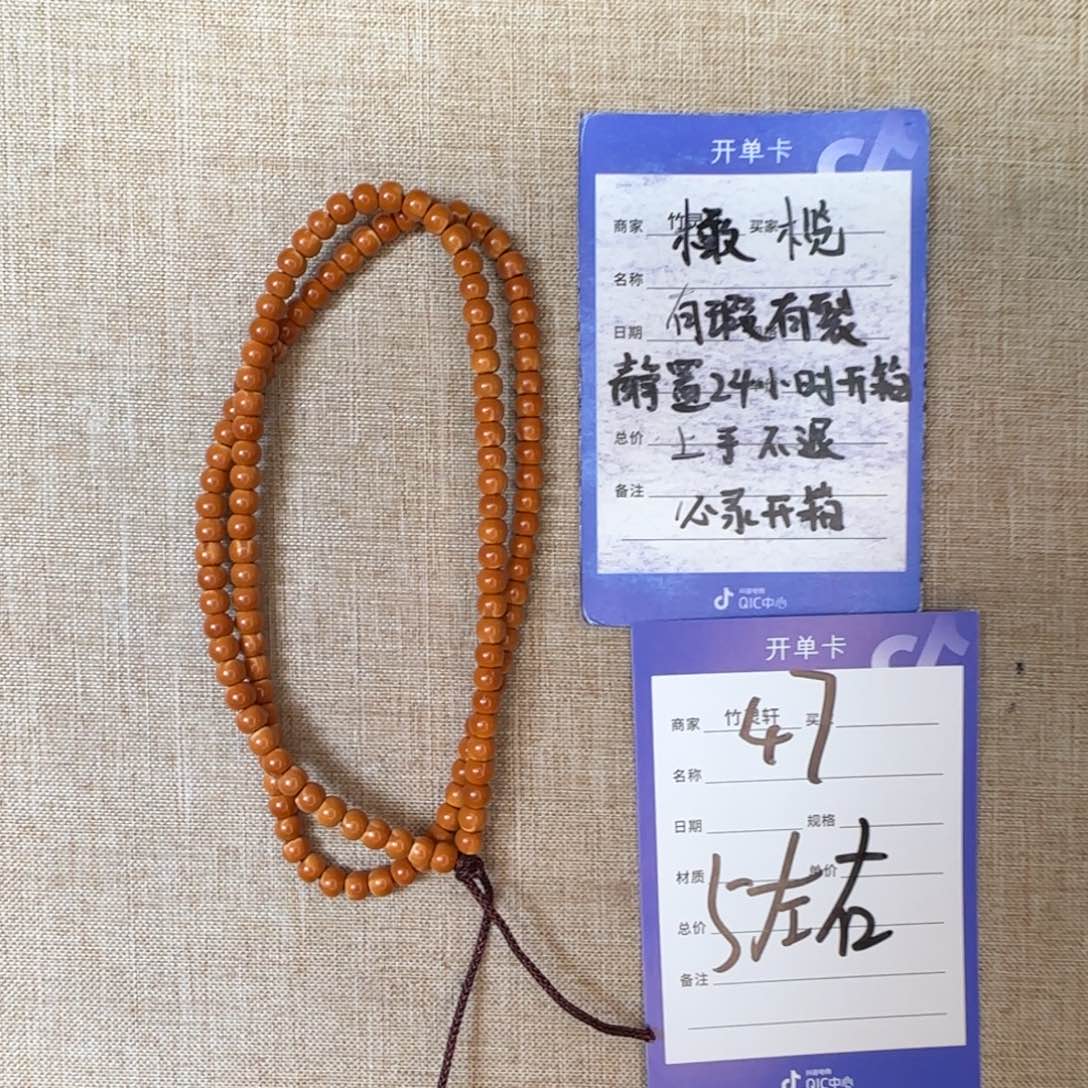 开单卡
商家 竹灵 买家
橄榄
名称
有瑕有裂
日期
静置24小时开箱
总价 上手不退
备注
必录开箱
抖音电商
QIC中心
开单卡
商家 竹灵轩 买
47
名称
日期 规格
材质 单价
5左右
总价
备注
抖音电商
QIC中心